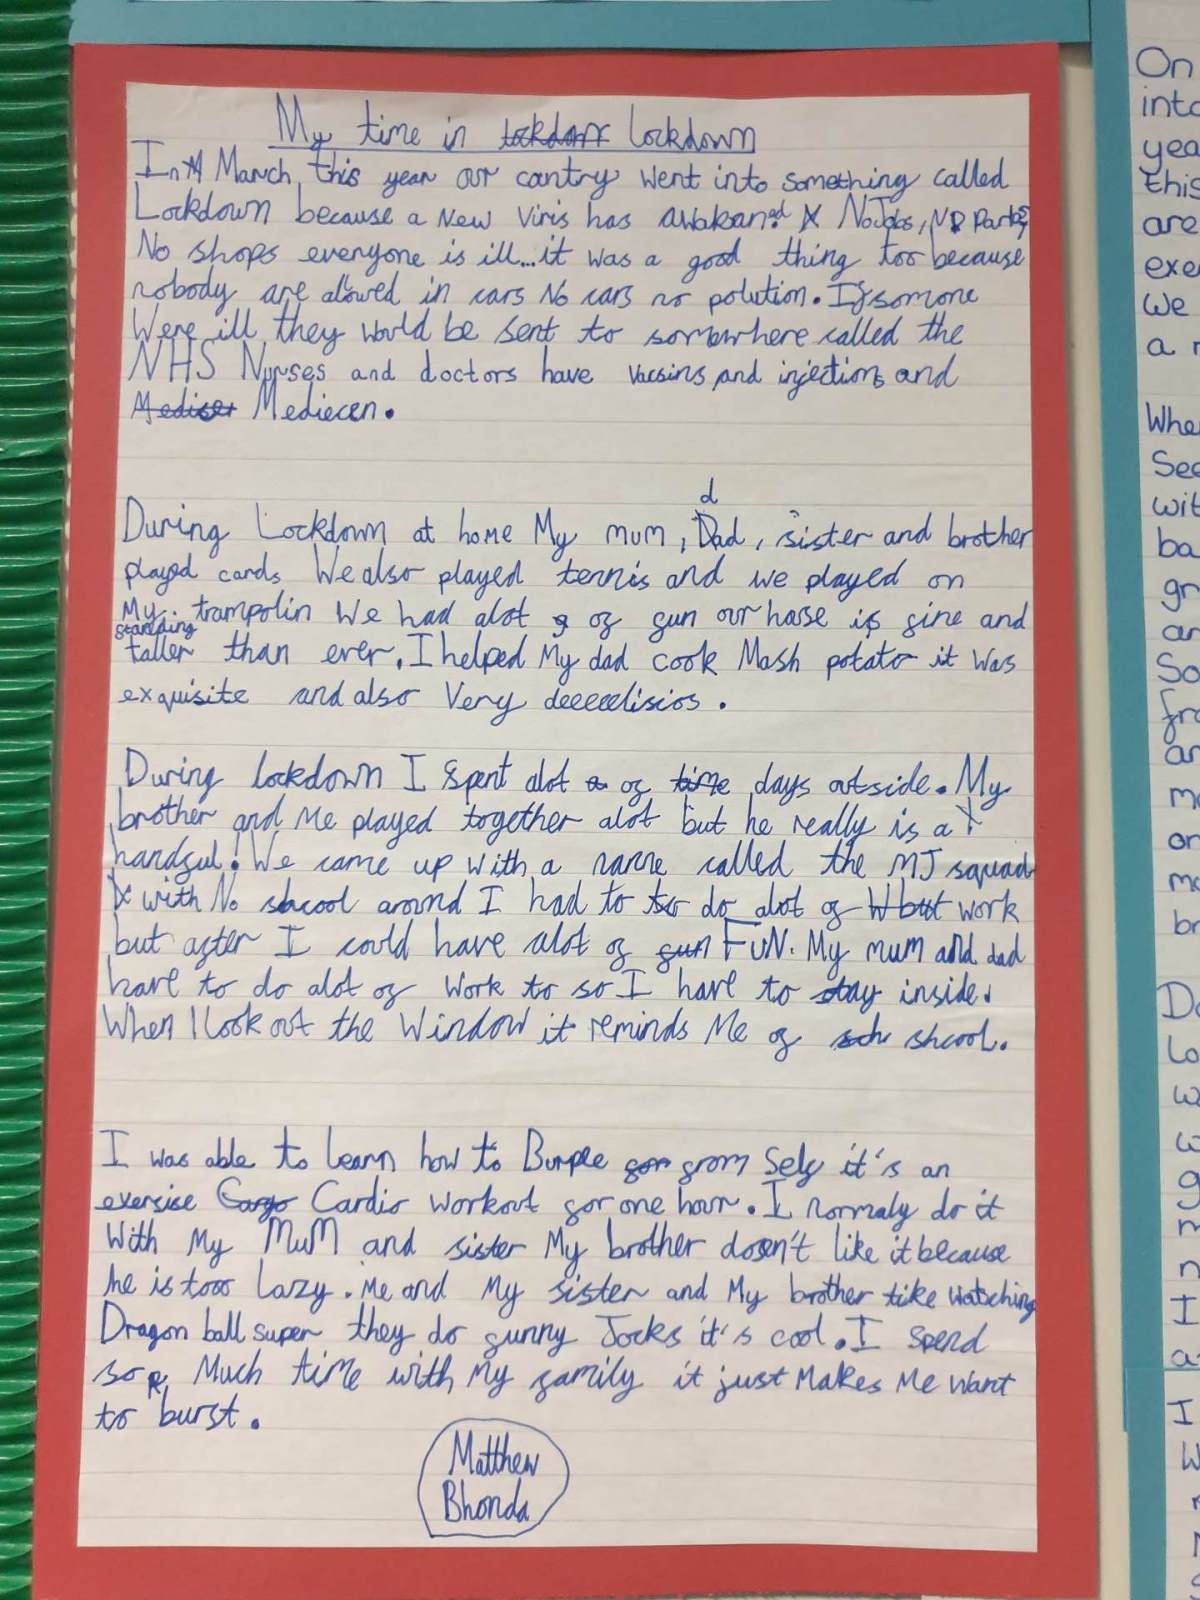 My time in lockdown
In March, this year our cantry went into something called
Lockdown because a New Viris has awakaned No Jobs, No Parks,
No shops everyone is ill... it was a good thing too because
nobody are allowed in cars No cars no polution. If somone
Were ill they would be sent to somewhere called the
NHS Nurses and doctors have vacsins, and injections and
Mediecen.
During Lockdown at home My mum, dad, sister and brother
played cards We also played tennis and we played on
My trampolin We had alot of fun our house is fine and
standing
taller than ever. I helped My dad cook Mash potato it was
exquisite and also Very deeeelisios.
During lockdown I spent alot of days outside. My
brother and Me played together alot but he really is a
handful! We came up with a name called the MJ squad
with No shcool around I had to do alot of work
but after I could have alot of FuN. My mum and dad
have to do alot of work to so I have to stay inside.
When I look out the Window it reminds Me of shcool.
I was able to learn how to Burpee from Self it's an
exersise Cardio workout for one hour. I normaly do it
With My MuM and sister My brother dosen't like it because
he is too Lazy. Me and My sister and My brother like watsching
Dragon ball super they do funny Jocks it's cool. I spend
so Much time with My family it just Makes Me want
to burst.
Matthew
Bhonda
On
into
yea
this
are
exe
we
a
Whe
See
wit
ba
gr
ar
So
fro
ar
mo
or
mo
br
Lo
w
w
g
m
n
I
a
I
W